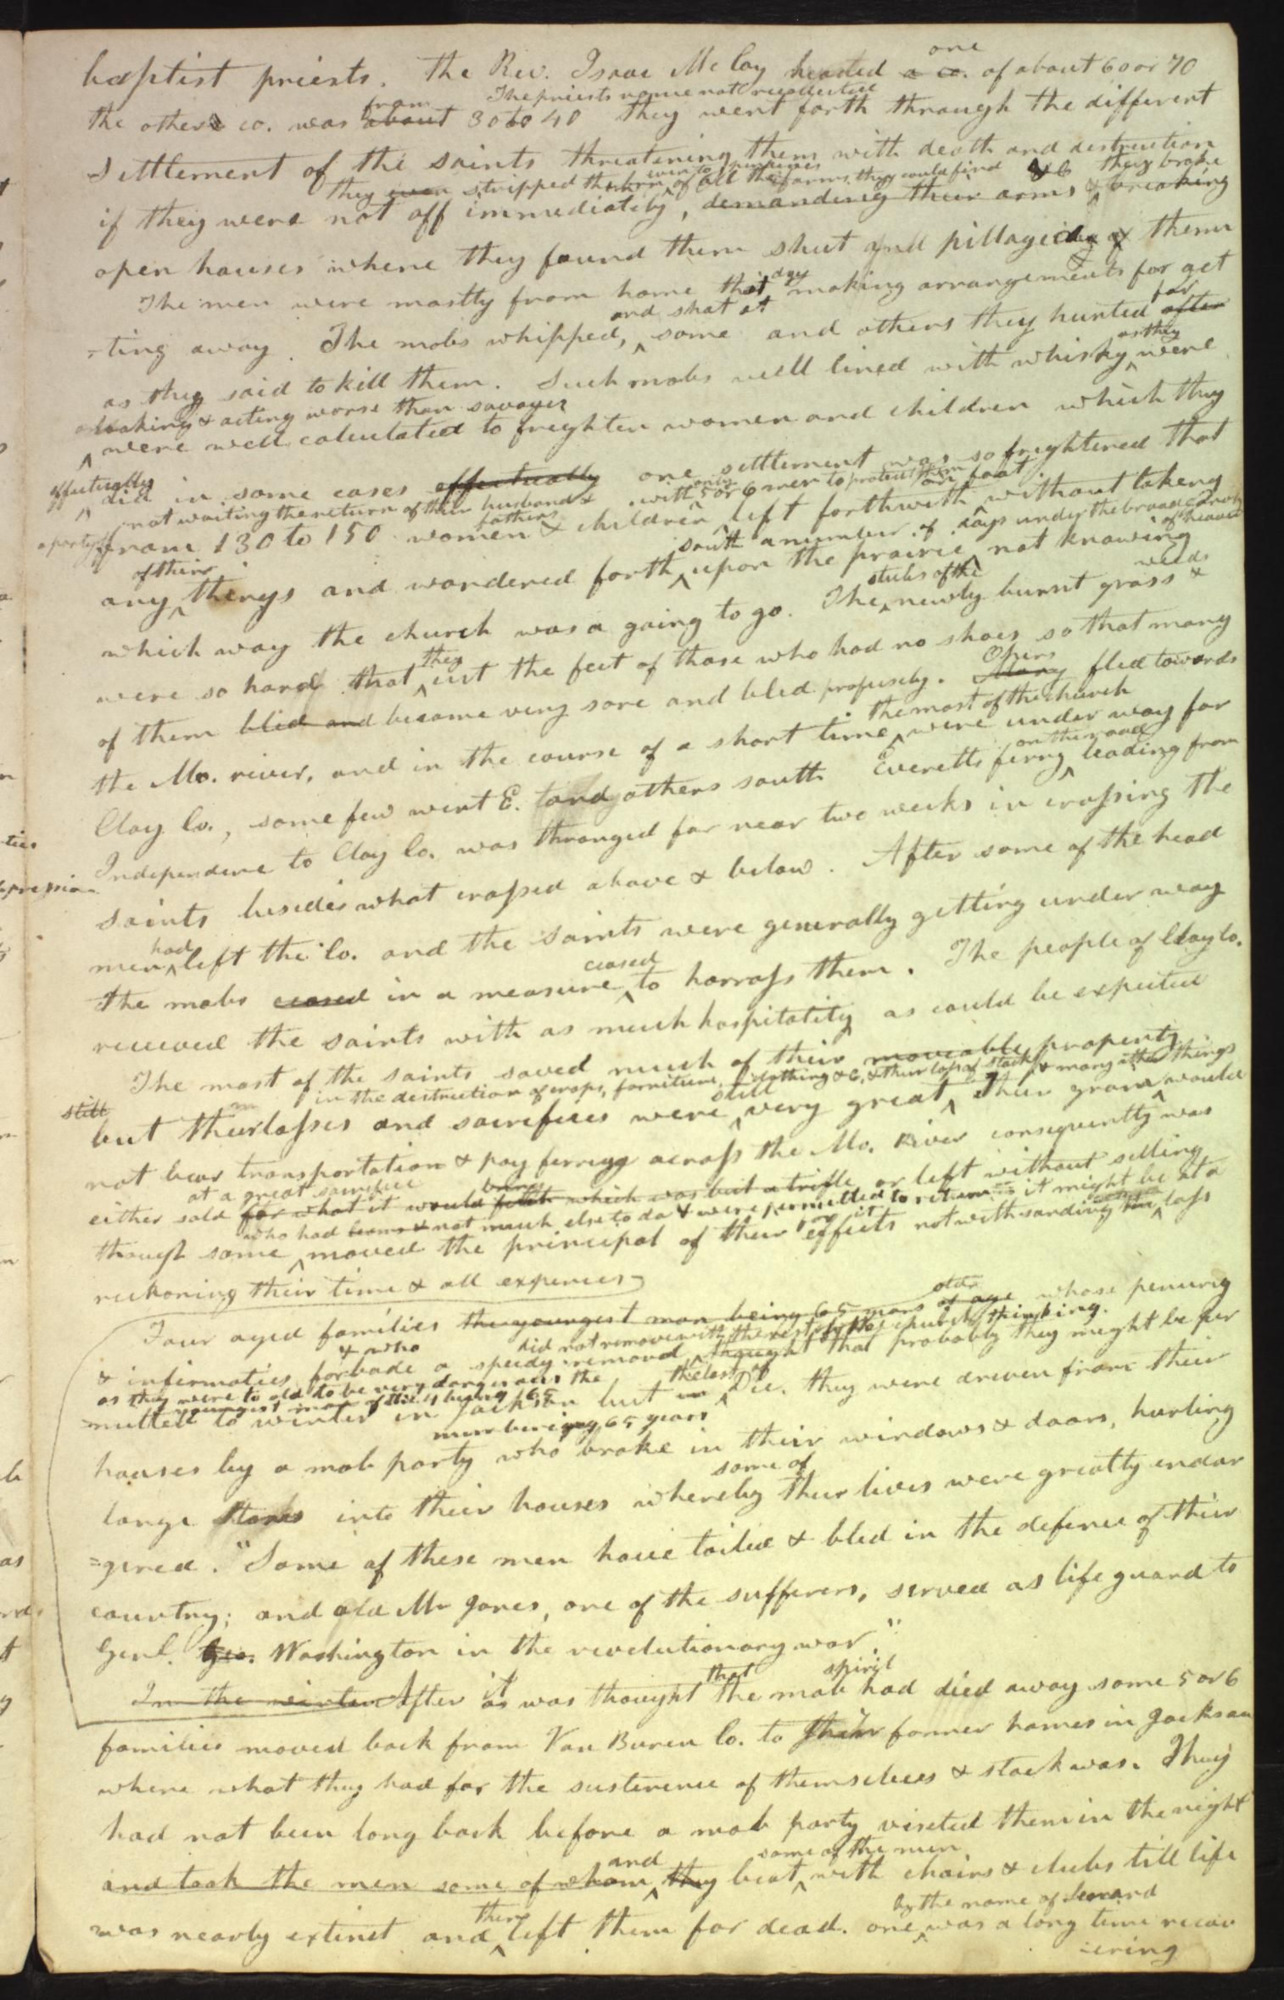 baptist priests. The Rev. Isaac McCoy headed a co. one of about 60 or 70
The priests name not recollected
the other co. was about from 30 to 40 they went forth through the different
Settlement of the saints threatening them with death and destruction
they even stripped them of all the farms they could find &C they broke
if they were not off immediately, demanding their arms & breaking
open houses where they found them shut and pillageing of them
The men were mostly from home that day making arrangements for get
-ting away. The mobs whipped, and shot at some and others they hunted after for
as they said to kill them. Such mobs well lined with whisky as they were
looking & acting worse than savages
were well calculated to freighten women and children which they
effectually did in some cases effectually one settlement was so frightened that
not waiting the return of their husbands & fathers with only 5 or 6 men to protect them on foot
a party of from 130 to 150 women & children left forthwith without takeng
south a number of days under the broad canopy of heaven
any of their thengs and wandered forth upon the prairie not knowing
which way the church was a going to go. The stubs of the newly burnt grass & weeds
were so hard that they cut the feet of those who had no shoes so that many
of them bled and became very sore and bled profusely. Many Others fled towards
the Mo. river, and in the course of a short time the most of the church were under way for
Clay Co., some few went E. and others south Everetts ferry on the road leading from
Independence to Clay Co. was thronged for near two weeks in crossing the
saints besides what crossed above & below. After some of the head
men had left the Co. and the Saints were generally getting under way
The mobs ceased in a measure ceased to harrass them. The people of Clay Co.
received the saints with as much hospitality as could be expected
The most of the saints saved much of their moveable property
in the destruction of crops, furniture, clothing &C, & their loss of stock & many other things
still but their losses and sacrifices were still very great, Their grain would
not bear transportation & pay ferrige across the Mo. River consequently was
either sold at a great sacrifice for what it would fetch bring which was but a trifle or left without selling
who had teams & not much else to do & were permitted to return for it
though some moved the principal of their effects notwithstanding it might be at a loss
reckoning their time & all expences
Four aged families the youngest man being 65 years of age old whose penurig
& infirmaties forbade a speedy removal & who did not remove with the rest of the church thought thinking that probably they might be per
as they were to old to be very dangerous the youngest man of the 4 being 65
=mitted to winter in Jackson but in the last of Dec. they were driven from their
man being 65 years
houses by a mob party who broke in their windows & doors, hurling
large stones into their houses whereby some of their lives were greatly endan
=gered. "Some of these men have toiled & bled in the defence of their
country; and old Mr Jones, one of the sufferers, served as life guard to
Genl. Geo. Washington in the revolutionary war."
In the winter After it was thought that the mob spirit had died away some 5 or 6
families moved back from Van Buren Co. to their former homes in Jackson
where what they had for the sustenence of themselves & stock was. They
had not been long back before a mob party viseted them in the night
and took the men some of whom and they beat some of the men with chairs & clubs till life
was nearly extinct and then left them for dead. one by the name of Leonard was a long time recov
=ering